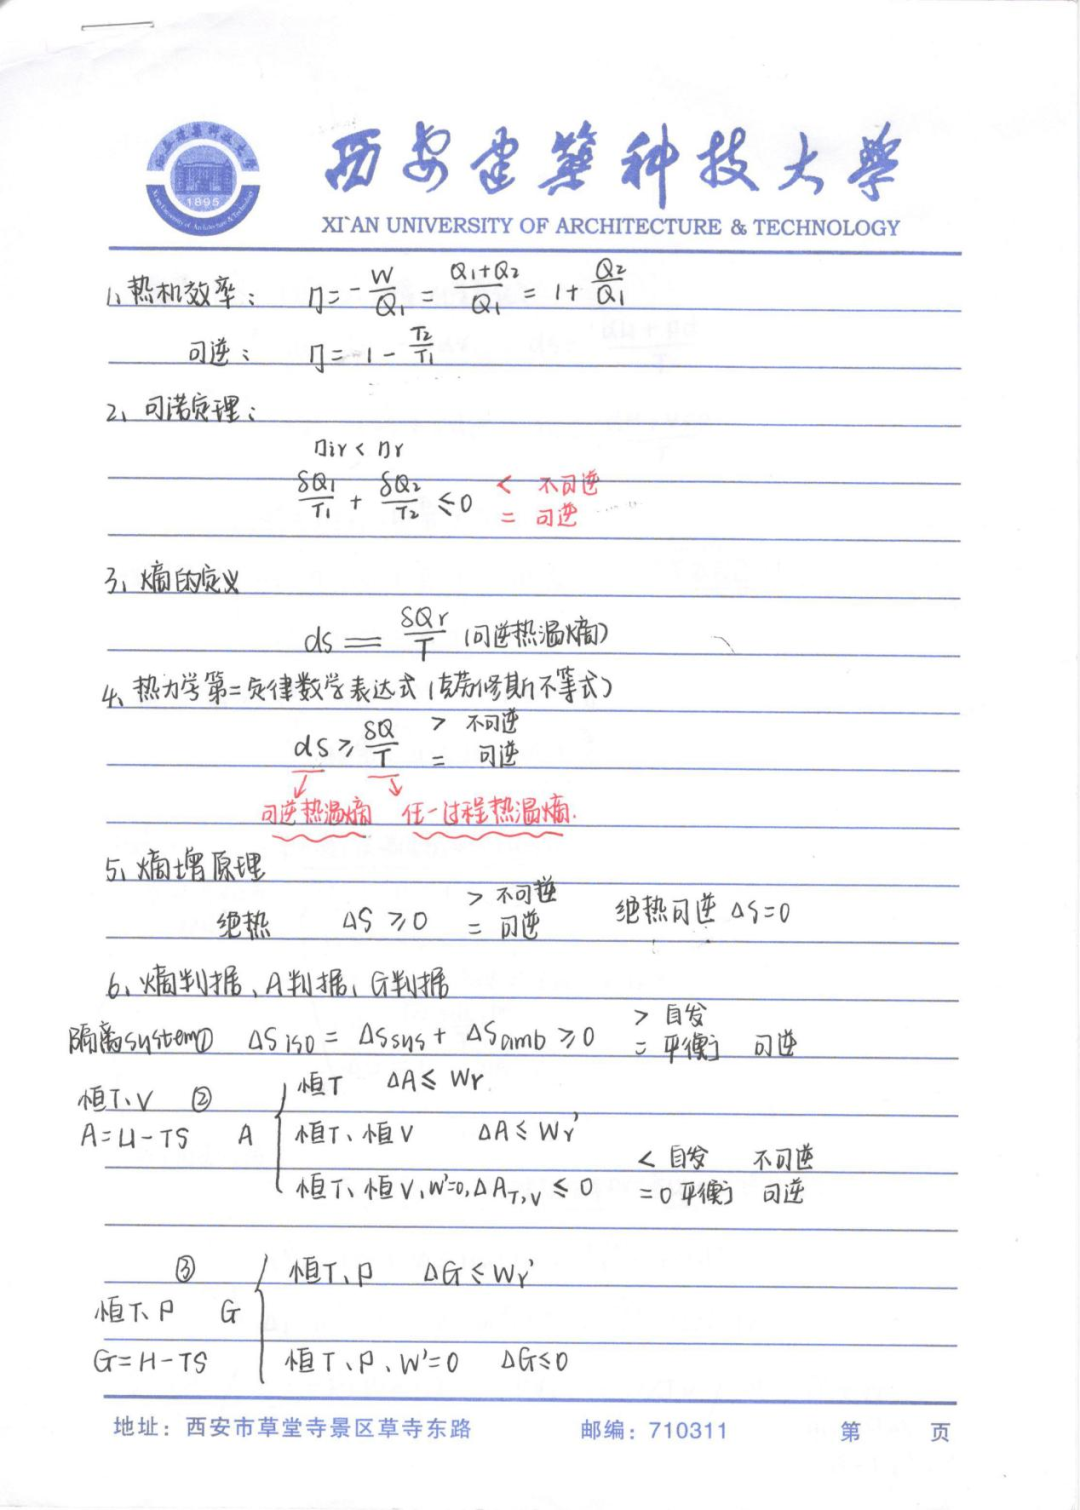 西安建筑科技大学
1895
XI'AN UNIVERSITY OF ARCHITECTURE & TECHNOLOGY
1、热机效率： η = -W/Q₁ = (Q₁+Q₂)/Q₁ = 1 + Q₂/Q₁
可逆： η = 1 - T₂/T₁
2、可诺定理：
ηir < ηr
δQ₁/T₁ + δQ₂/T₂ ≤ 0 < 不可逆
= 可逆
3、熵的定义
ds == δQr/T (可逆热温熵)
4、热力学第二定律数学表达式(克劳修斯不等式)
ds ≥ δQ/T > 不可逆
= 可逆
可逆热温熵 任一过程热温熵.
5、熵增原理
绝热 ΔS ≥ 0 > 不可逆 绝热可逆 ΔS=0
= 可逆
6、熵判据、A判据、G判据
隔离system① ΔS iso = ΔSsys + ΔSamb ≥ 0 > 自发
= 平衡 可逆
恒T、V ② 恒T ΔA ≤ Wr
A=U-TS A 恒T、恒V ΔA ≤ Wr'
恒T、恒V、W'=0, ΔA T,V ≤ 0 < 自发 不可逆
=0 平衡 可逆
③ 恒T、P ΔG ≤ Wr'
恒T、P G
G=H-TS 恒T、P、W'=0 ΔG≤0
地址：西安市草堂寺景区草寺东路 邮编：710311 第 页